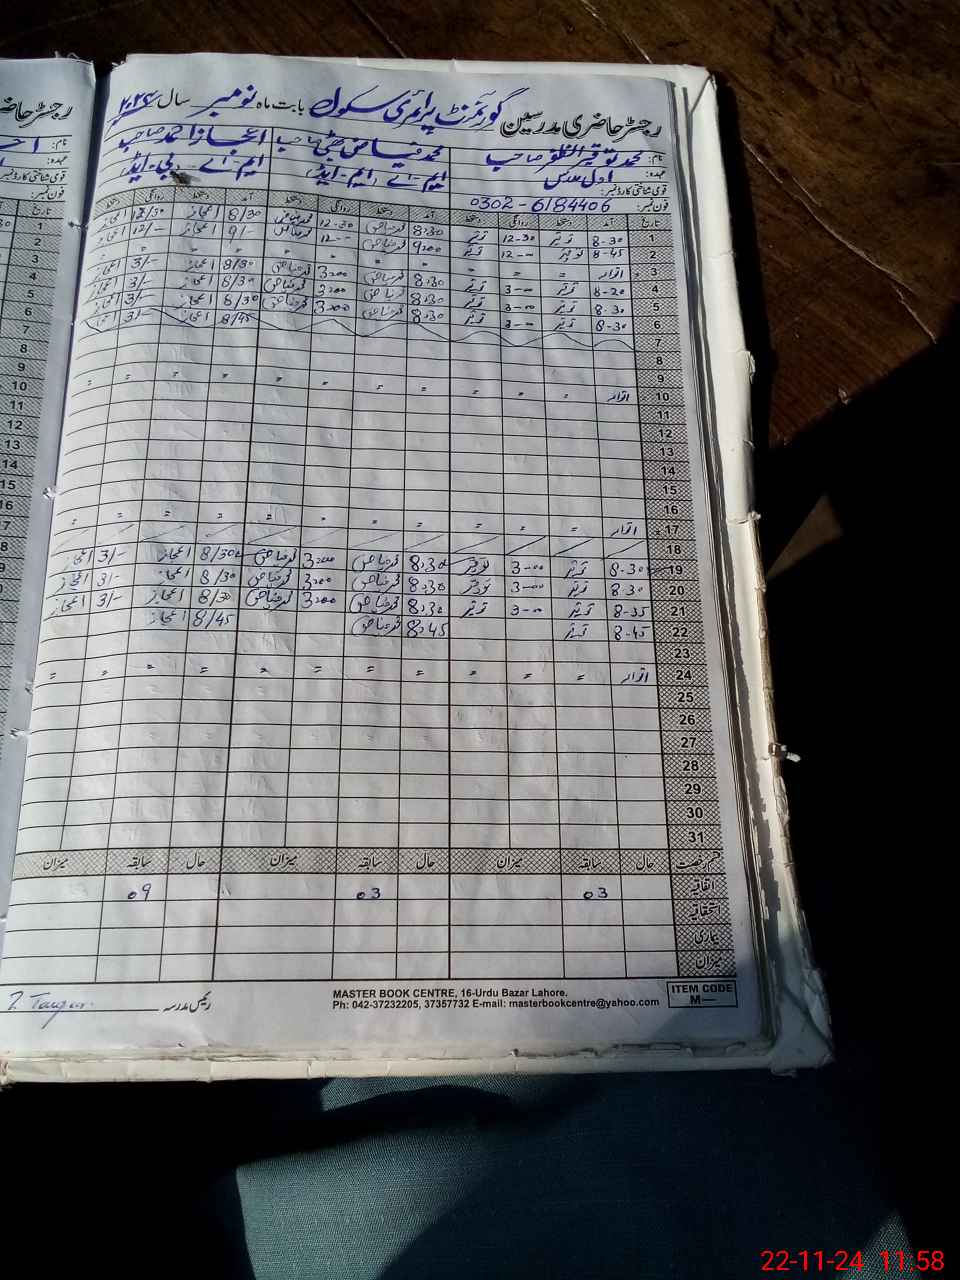 رجسٹر حاضری مدرسین گورنمنٹ پرائمری سکول بابت ماہ نومبر سال ۲۰۲۴
نام: محمد توقیر المظفر صاحب محمد فیاض بھٹی صاحب اعجاز احمد صاحب
عہدہ: ایم-اے (ایم-ایڈ) ایم-اے-بی-ایڈ
قومی شناختی کارڈ نمبر:
فون نمبر: 0302-6184406
تاریخ آمد دستخط روانگی دستخط آمد دستخط روانگی دستخط آمد دستخط روانگی دستخط
1 8-30 توقیر 12-30 توقیر 8:30 محمد فیاض 12-30 محمد فیاض 8/30 اعجاز 12/30 اعجاز
2 8-45 توقیر 12-00 توقیر 9:00 محمد فیاض 12-- محمد فیاض 9/- اعجاز 12/- اعجاز
3 اتوار " " " " " " " " " "
4 8-20 توقیر 3-00 توقیر 8:30 محمد فیاض 3:00 محمد فیاض 8/30 اعجاز 3/- اعجاز
5 8-30 توقیر 3-00 توقیر 8:30 محمد فیاض 3:00 محمد فیاض 8/30 اعجاز 3/- اعجاز
6 8-30 توقیر 3-00 توقیر 8:30 محمد فیاض 3:00 محمد فیاض 8/30 اعجاز 3/- اعجاز
7 8/45 اعجاز 3/-
8
9
10 اتوار " " " " " " " " " "
11
12
13
14
15
16
17 اتوار " " " " " " " " " "
18
19 8-30 توقیر 3-00 توقیر 8:30 محمد فیاض 3:00 محمد فیاض 8/30 اعجاز 3/- اعجاز
20 8-30 توقیر 3-00 توقیر 8:30 محمد فیاض 3:00 محمد فیاض 8/30 اعجاز 3/- اعجاز
21 8-35 توقیر 3-00 توقیر 8:30 محمد فیاض 3:00 محمد فیاض 8/30 اعجاز 3/- اعجاز
22 8-45 توقیر 8:45 محمد فیاض 8/45 اعجاز
23
24 اتوار " " " " " " " " " "
25
26
27
28
29
30
31
قسم رخصت حال سابقہ میزان حال سابقہ میزان حال سابقہ میزان
اتفاقیہ 03 03 09
استحقاقیہ
بیماری
میزان
رئیس مدرسہ
MASTER BOOK CENTRE, 16-Urdu Bazar Lahore.
Ph: 042-37232205, 37357732 E-mail: masterbookcentre@yahoo.com
ITEM CODE
M—
22-11-24 11:58